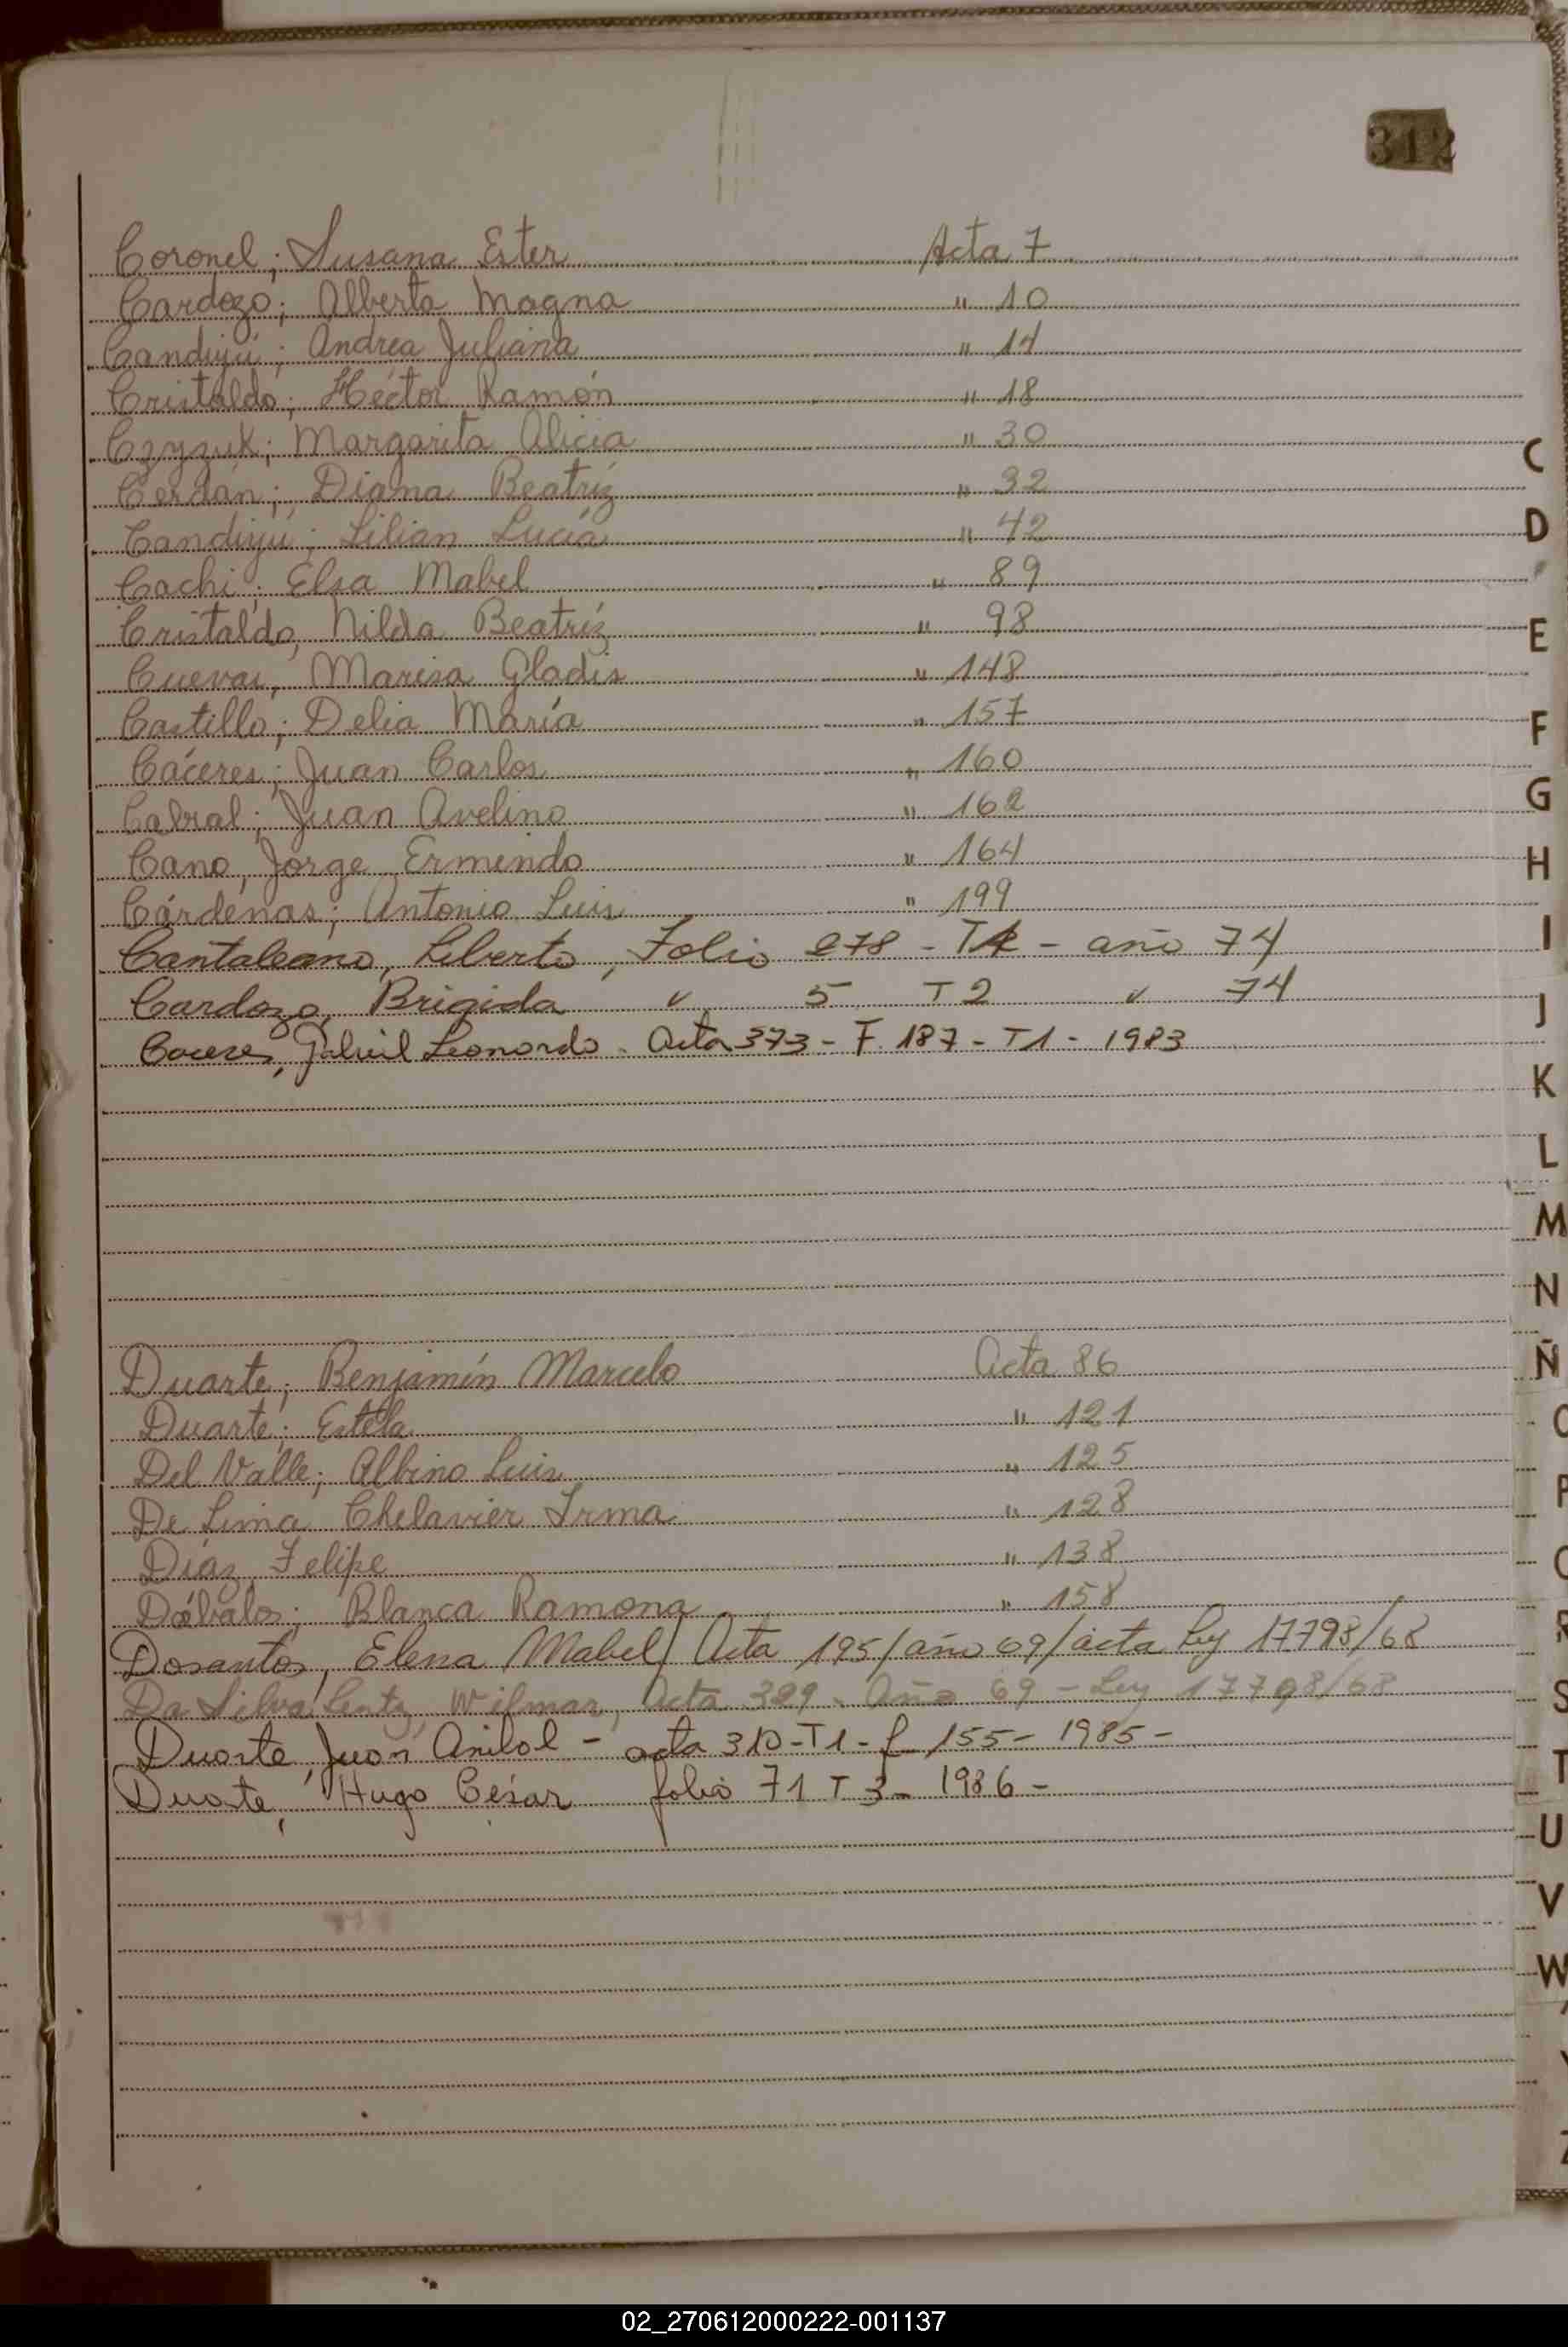 312
Coronel; Susana Ester Acta 7
Cardozo; Alberta Magna " 10
Candiyú; Andrea Juliana " 14
Cristaldo; Héctor Ramón " 18
Czyzuk; Margarita Alicia " 30
Cerdán; Diana Beatríz " 32
Candiyú; Lilian Lucía " 42
Cachi; Elsa Mabel " 89
Cristaldo, Nilda Beatríz " 98
Cuevas, Marisa Gladis " 148
Castillo; Delia María " 157
Cáceres; Juan Carlos " 160
Cabral; Juan Avelino " 162
Cano, Jorge Ermindo " 164
Cárdenas; Antonio Luis " 199
Cantaleano, Liberto, Folio 278 - - año 74
Cardozo, Brigida " 5 T2 " 74
Caceres, Gabriel Leonardo - Acta 373 - F. 187 - T1 - 1983
Duarte; Benjamín Marcelo Acta 86
Duarte; Estela " 121
Del Valle; Albino Luis " 125
De Lima Chelavier Irma " 128
Díaz, Felipe " 138
Dábalos; Blanca Ramona " 158
Dosantos, Elena Mabel/ Acta 195/año 69/acta Ley 17798/68
Da Silva Lentz, Wilmar, Acta 399 - Año 69 - Ley 17798/68
Duarte, Juan Anibal - acta 310 - T1 - f 155 - 1985 -
Duarte, Hugo César folio 71 T 3 - 1986 -
C
D
E
F
G
H
I
J
K
L
M
N
Ñ
R
S
T
U
V
W
02_270612000222-001137